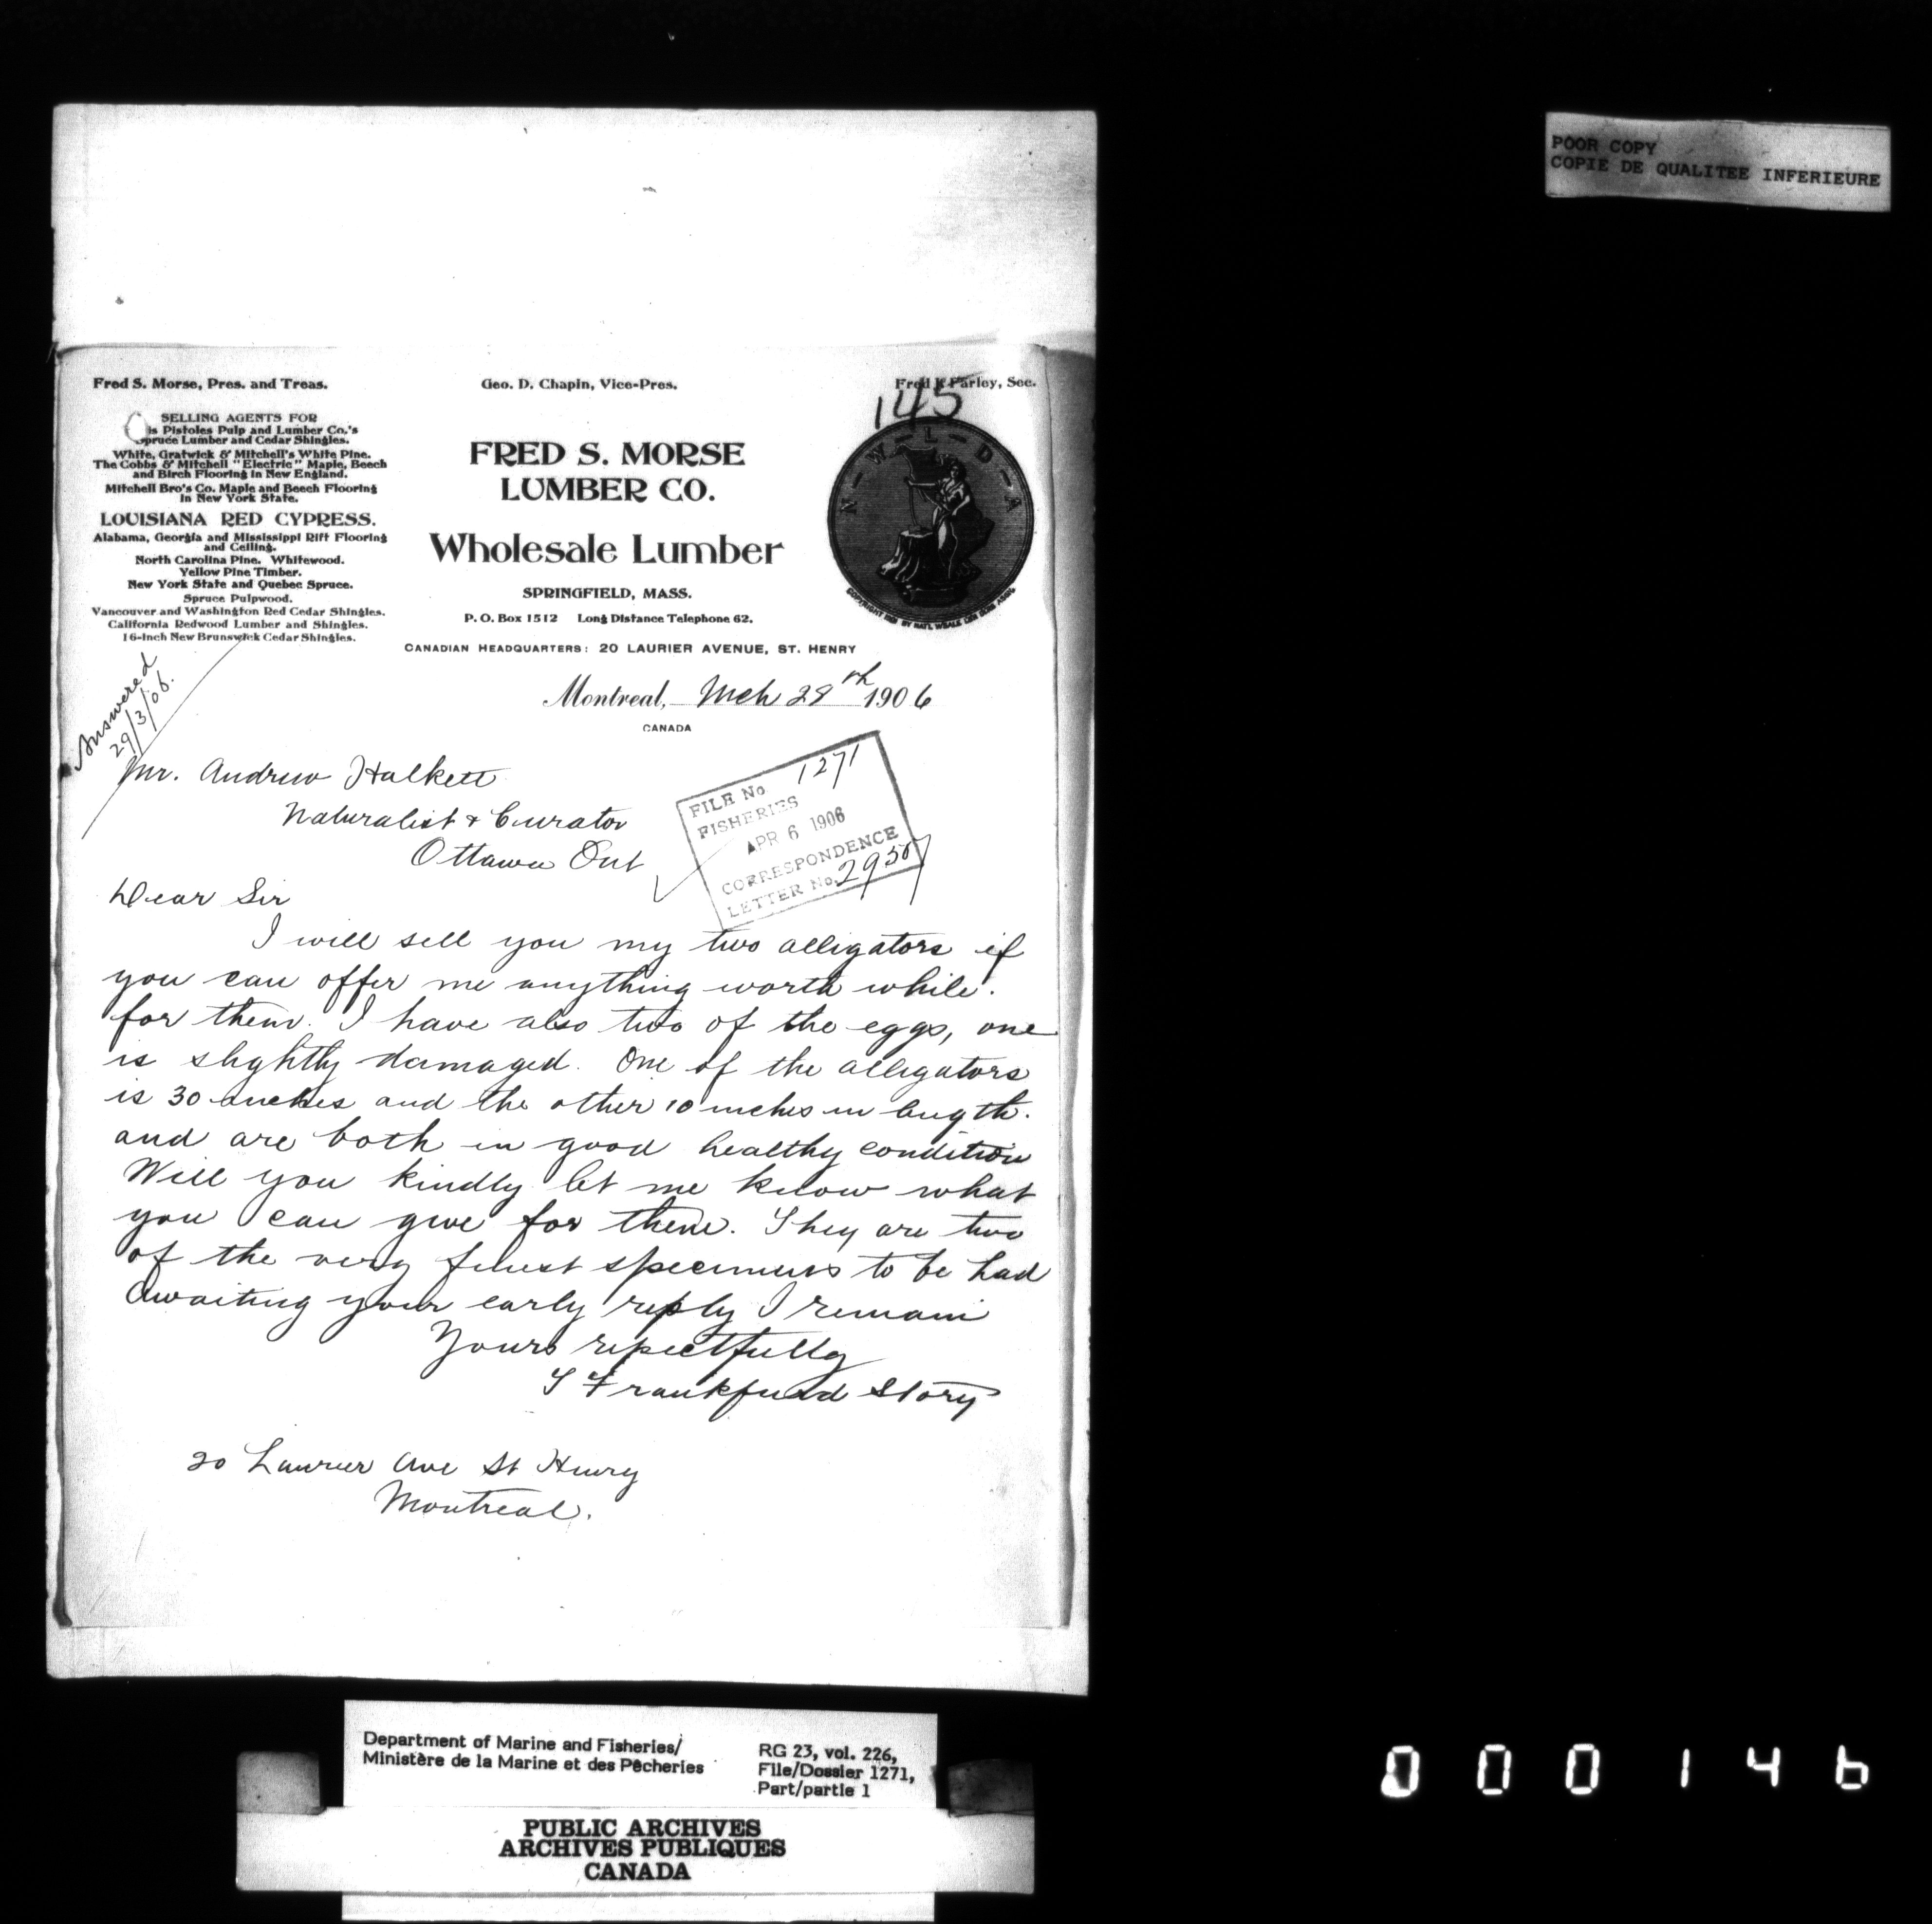 POOR COPY
COPIE DE QUALITEE INFERIEURE
Fred S. Morse, Pres. and Treas.
Geo. D. Chapin, Vice-Pres.
Fred Farley, Sec.
145
SELLING AGENTS FOR
is Pistoles Pulp and Lumber Co.'s
Spruce Lumber and Cedar Shingles.
White, Gratwick & Mitchell's White Pine.
The Cobbs & Mitchell "Electric" Maple, Beech
and Birch Flooring in New England.
Mitchell Bro's Co. Maple and Beech Flooring
in New York State.
LOUISIANA RED CYPRESS.
Alabama, Georgia and Mississippi Rift Flooring
and Ceiling.
North Carolina Pine. Whitewood.
Yellow Pine Timber.
New York State and Quebec Spruce.
Spruce Pulpwood.
Vancouver and Washington Red Cedar Shingles.
California Redwood Lumber and Shingles.
16-inch New Brunswick Cedar Shingles.
FRED S. MORSE
LUMBER CO.
Wholesale Lumber
SPRINGFIELD, MASS.
P. O. Box 1512 Long Distance Telephone 62.
CANADIAN HEADQUARTERS: 20 LAURIER AVENUE, ST. HENRY
N-W-L-D-A
COPYRIGHT BY NAT'L WSALE LBR DLRS ASSN.
Montreal, Mch 28th 1906
CANADA
Answered
29/3/06.
Mr. Andrew Halkett
Naturalist & Curator
Ottawa Ont
FILE No 1271
FISHERIES
APR 6 1906
CORRESPONDENCE
LETTER No. 2950
Dear Sir
I will sell you my two alligators if
you can offer me anything worth while.
for them. I have also two of the eggs, one
is slightly damaged. One of the alligators
is 30 inches and the other 10 inches in length.
and are both in good healthy condition
Will you kindly let me know what
you can give for them. They are two
of the very finest specimens to be had
Awaiting your early reply I remain
Yours repectfully
Story
20 Laurier Ave St Henry
Montreal.
Department of Marine and Fisheries/
Ministère de la Marine et des Pêcheries
RG 23, vol. 226,
File/Dossier 1271,
Part/partie 1
PUBLIC ARCHIVES
ARCHIVES PUBLIQUES
CANADA
000146